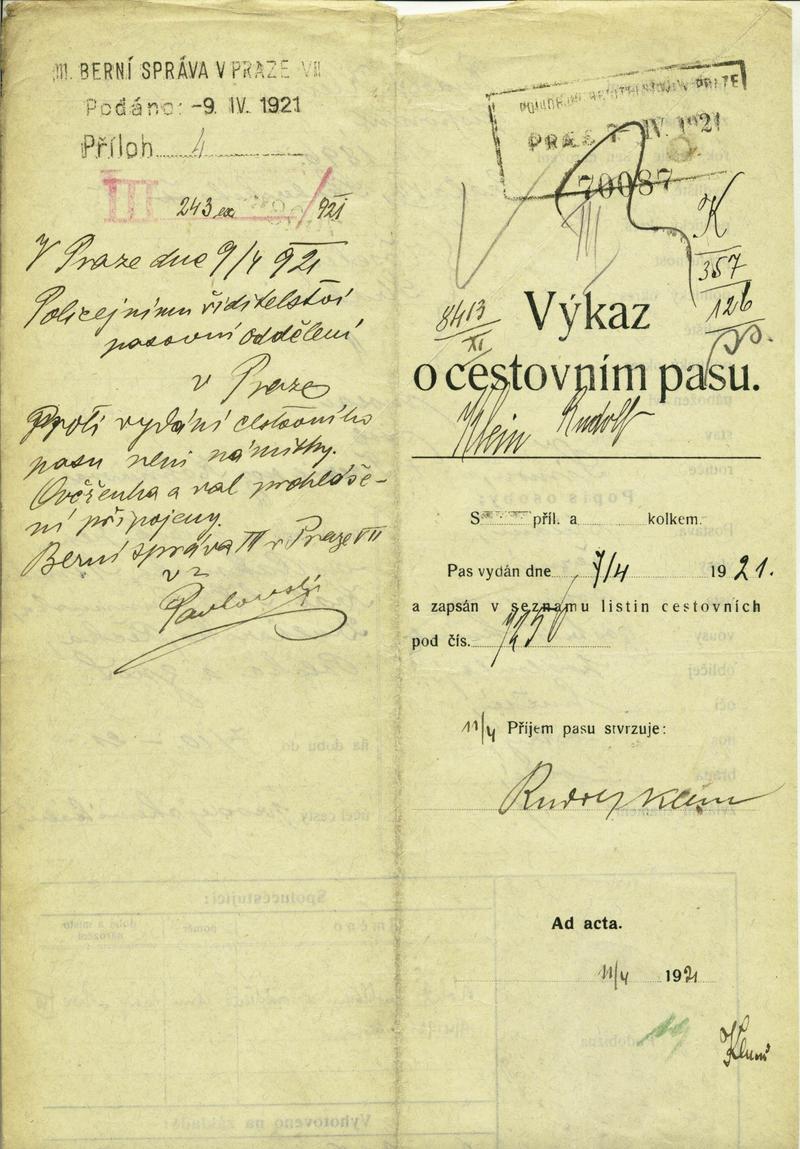 III. BERNÍ SPRÁVA V PRAZE VII
Podáno: -9. IV. 1921
Příloh 4
III 243 ex /921
V Praze dne 9/4 921
Policejnímu ředitelství
pasovní oddělení
v Praze
Proti vydání cestovního
pasu není námitky.
Ověřenka a val prohláše-
ní připojeny.
Berní správa III v Praze VII
Pavlovský
PRAE 7 IV. 1921
70087
III
K
357
126
8413
XI
Výkaz
o cestovním pasu.
Klein Rudolf
S příl. a kolkem.
Pas vydán dne 7/4 1921.
a zapsán v seznamu listin cestovních
pod čís. 7256
11/4 Příjem pasu stvrzuje:
Rudolf Klein
Ad acta.
11/4 1921
19